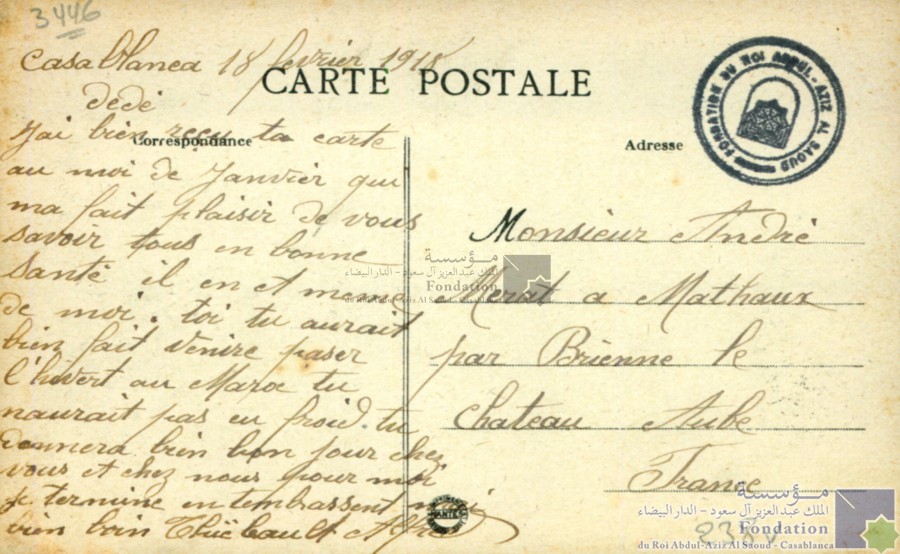 3446
Casablanca 18 fevrier 1918
CARTE POSTALE
dedé
Correspondance
J'ai bien reçu ta carte
au moi de Janvier qui
ma fait plaisir de vous
savoir tous en bonne
santé il en et meme
de moi. toi tu aurait
bien fait venire paser
l'hivert au Maroc tu
naurait pas eu froid. tu
donnera bien bon jour chez
vous et chez nous pour moi
je termine en tembrassent
bien
FONDATION DU ROI ABDUL-AZIZ AL SAOUD
Adresse
Monsieur André
Merat a Mathaux
par Brienne le
chateau Aube
France
NANTES
مؤسسة
الملك عبد العزيز آل سعود - الدار البيضاء
Fondation
du Roi Abdul-Aziz Al Saoud - Casablanca
مؤسسة
الملك عبد العزيز آل سعود - الدار البيضاء
Fondation
du Roi Abdul-Aziz Al Saoud - Casablanca